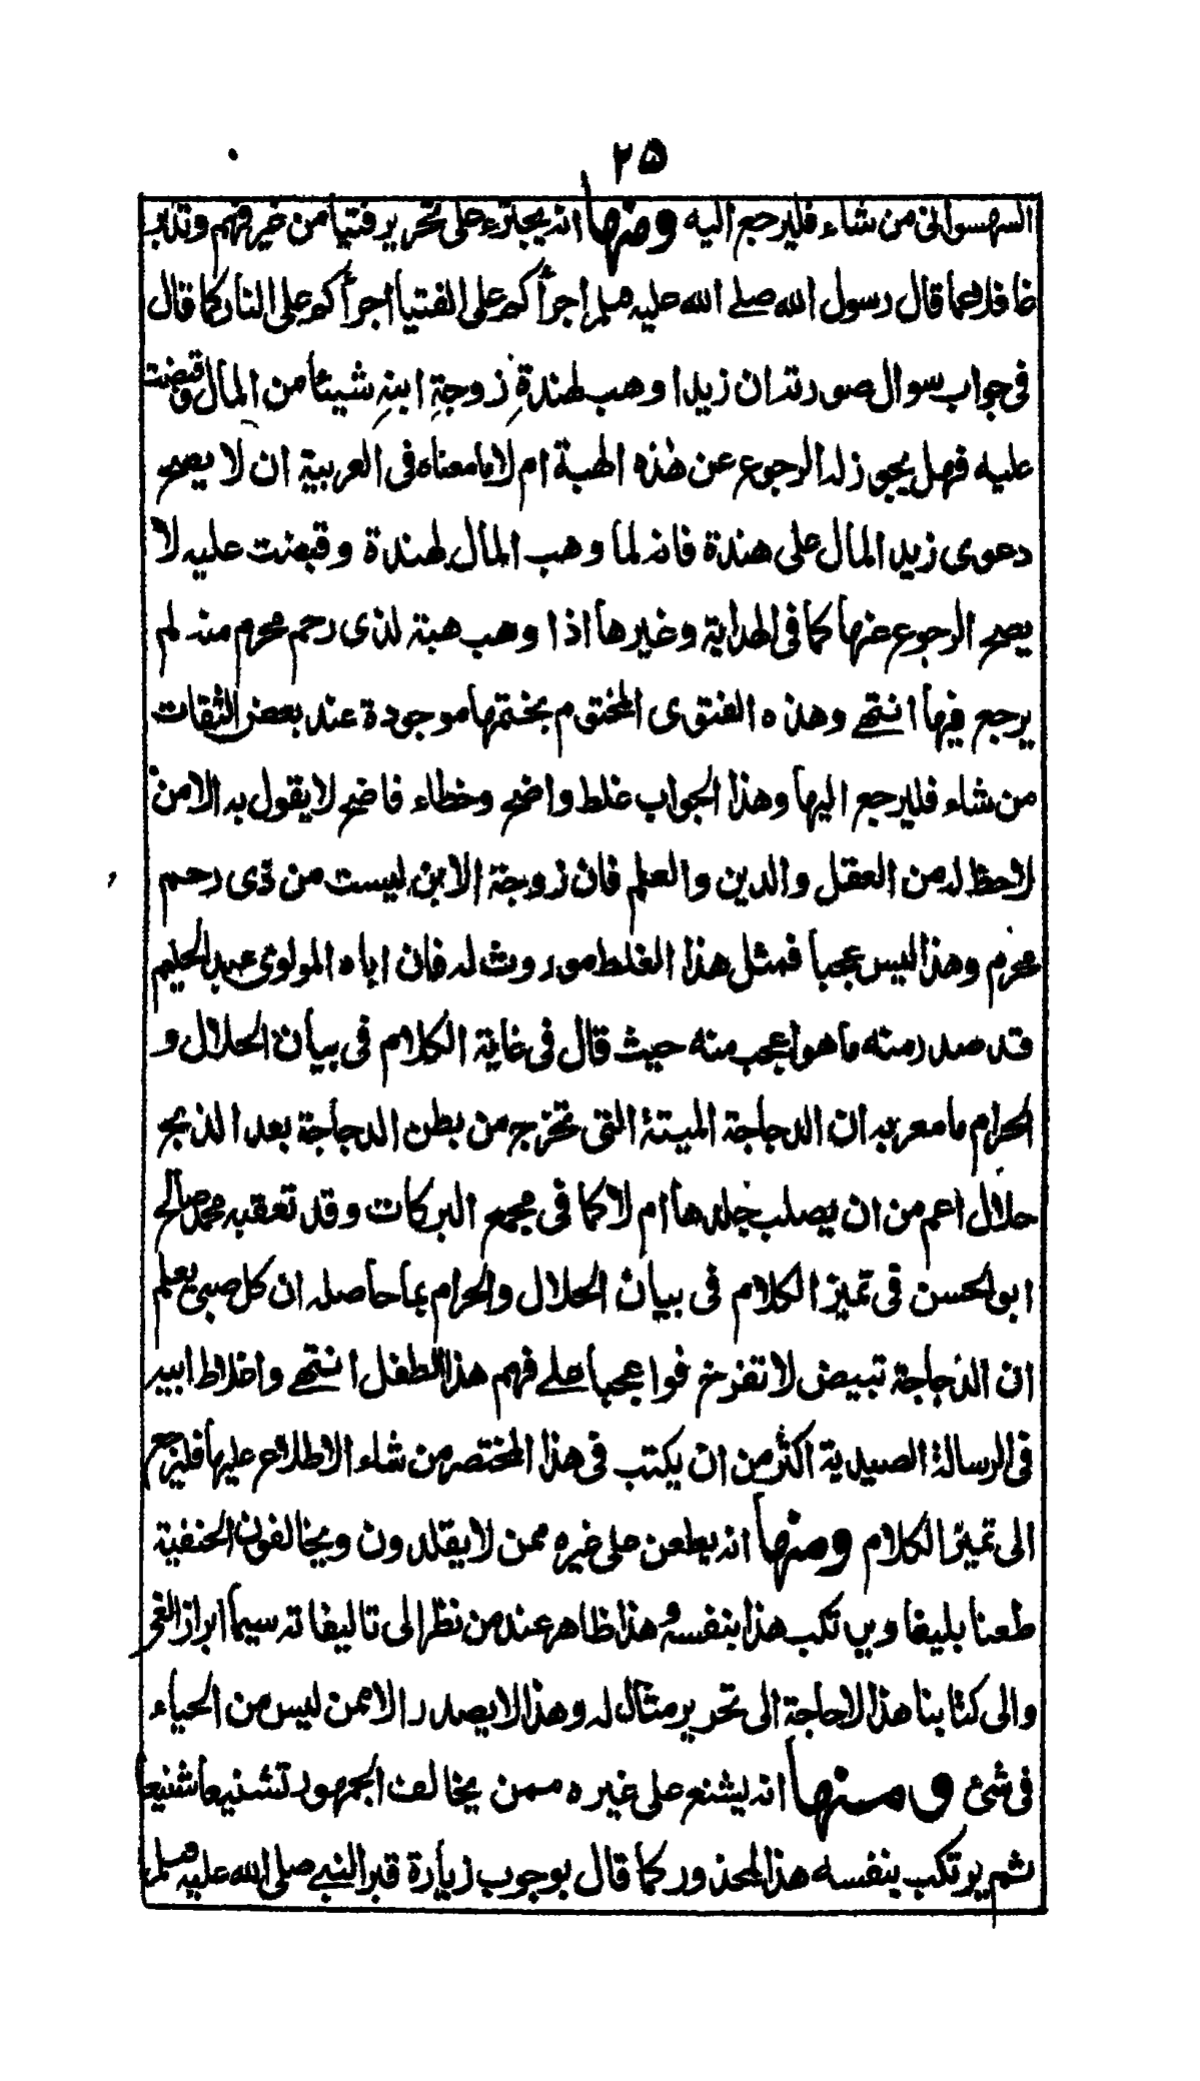 ٢٥
السهسوانى من شاء فليرجع اليه ومنها انه يجترء على تحرير فتيا من غير فهم وتدبر
غافلا عما قال رسول الله صلے الله عليه وسلم اجرأكم على الفتيا اجرأكم على النار كما قال
فى جواب سوال صورته ان زيدا وهب لهندةِ زوجةِ ابنهِ شيئا من المال وقبضت
عليه فهل يجوز له الرجوع عن هذه الهبة ام لا بما معناه فى العربية ان لا يصح
دعوى زيد المال على هندة فانه لما وهب المال لهندة وقبضت عليه لا
يصح الرجوع عنها كما فى الهداية وغيرها اذا وهب هبة لذى رحم محرم منه لم
يرجع فيها انتهے وهذه الفتوى المختوم بختمها موجودة عند بعض الثقات
من شاء فليرجع اليها وهذا الجواب غلط واضح وخطاء فاضح لا يقول به الا من
لاحظ له من العقل والدين والعلم فان زوجة الابن ليست من ذى رحم
محرم وهذا ليس عجبا فمثل هذا الغلط موروث له فان اباه المولوى عبد الحليم
قد صدر منه ما هو اعجب منه حيث قال فى غاية الكلام فى بيان الحلال و
الحرام ما معربه ان الدجاجة الميتة التى تخرج من بطن الدجاجة بعد الذبح
حلال اعم من ان يصلب جلدها ام لا كما فى مجمع البركات وقد تعقبه محمد صالح
ابو الحسن فى تميز الكلام فى بيان الحلال والحرام بما حاصله ان كل صبى يعلم
ان الدجاجة تبيض لا تفرخ فوا عجبا علے فهم هذا الطفل انتهے واغلاط ابيه
فى الرسالة الصيدية اكثر من ان يكتب فى هذا المختصر من شاء الاطلاع عليها فليرجع
الى تميز الكلام ومنها انه يطعن على غيره ممن لا يقلدون ويخالفون الحنفية
طعنا بليغا ويرتكب هذا بنفسه وهذا ظاهر عند من نظر الى تاليفاته سيما ابراز الغى
والى كتابنا هذا لا حاجة الى تحرير مثال له وهذا لا يصدر الا ممن ليس من الحياء
فى شئ ومنها انه يشنع على غيره ممن يخالف الجمهور تشنيعا شنيعا
ثم يرتكب بنفسه هذا المحذور كما قال بوجوب زيارة قبر النبے صلى الله عليه وسلم